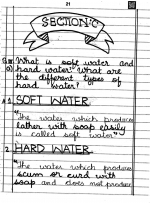 21
SECTION-C
What is soft water and
hard water? What are
the different types of
hard water?
1. SOFT WATER
"The water which produces
lather with soap easily
is called soft water"
2. HARD WATER
"The water which produce
scum or curd with
soap and does not produce